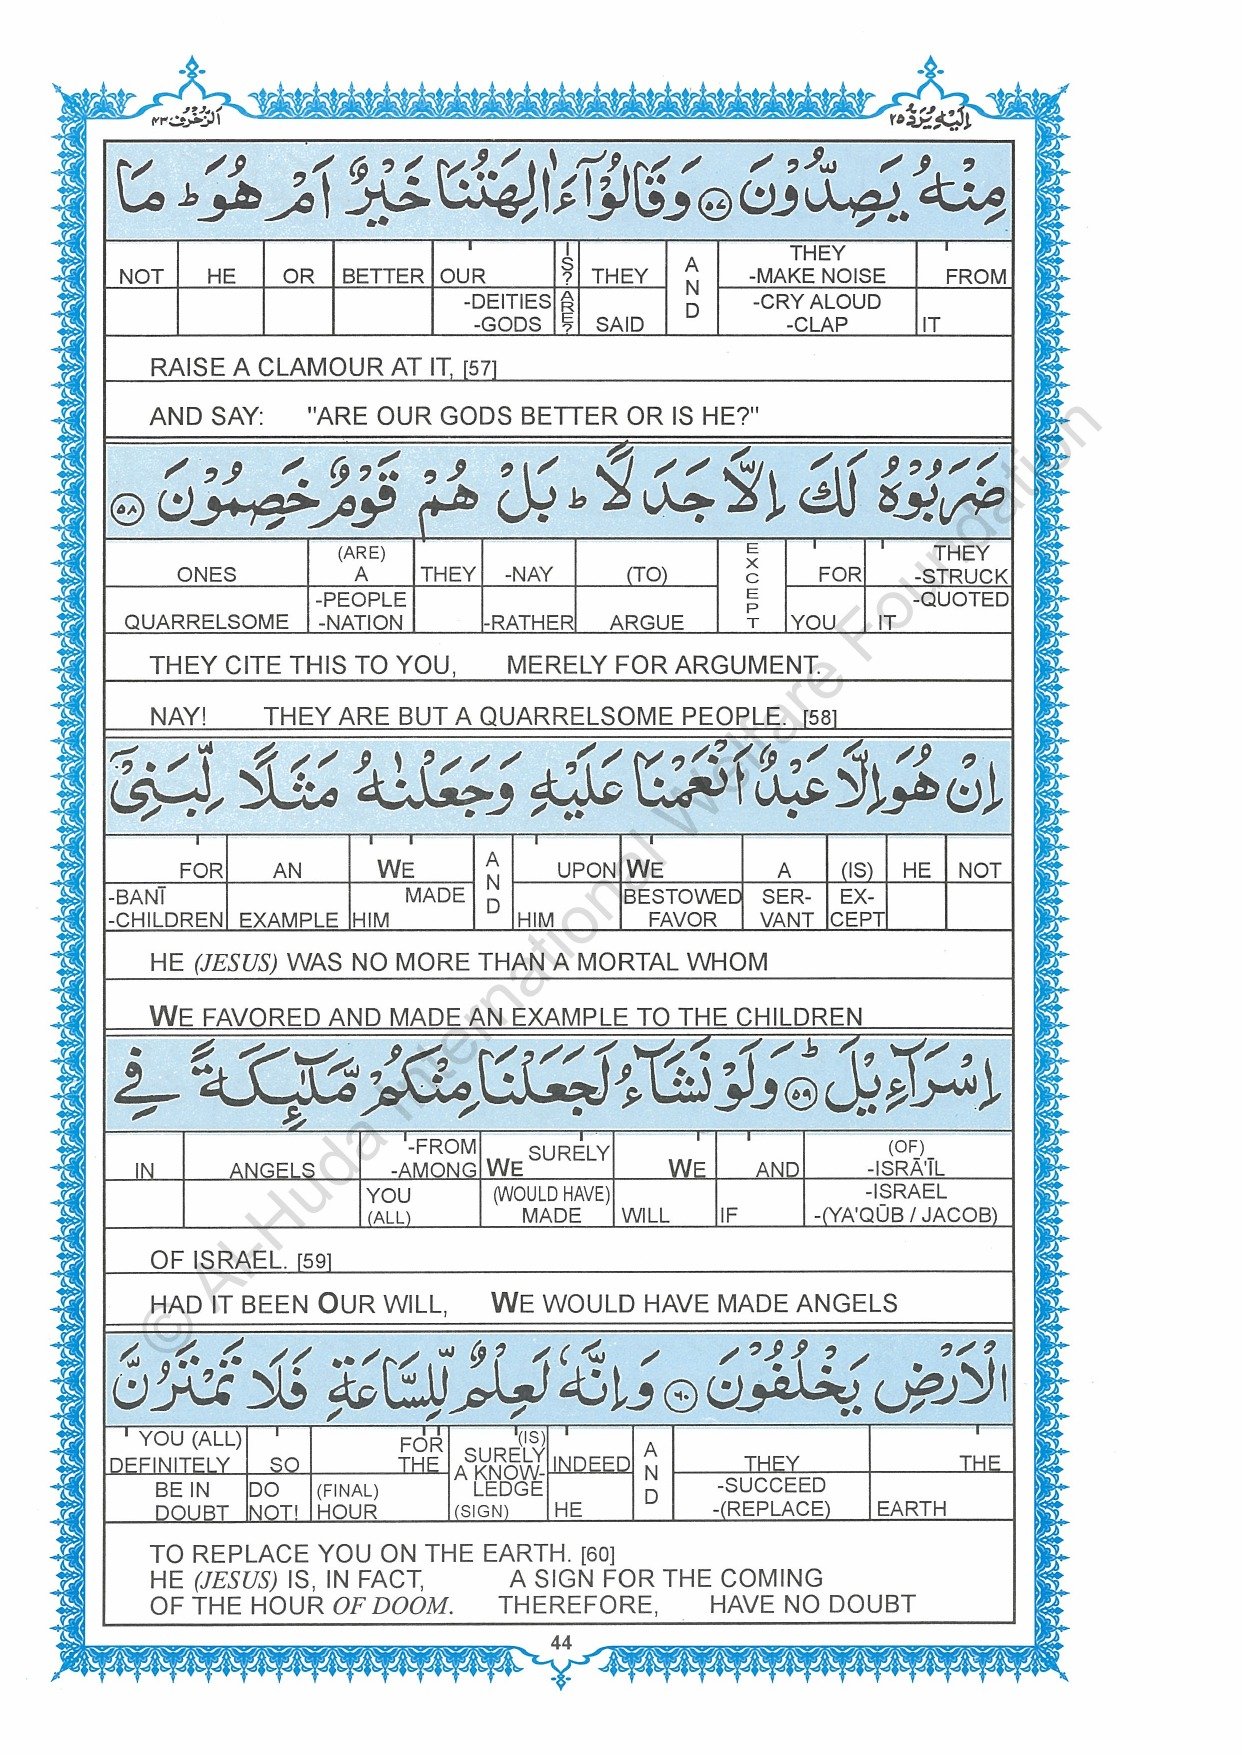 اَلزُّخْرُف ٤٣
اِلَيْهِ يُرَدُّ ٢٥
مِنْهُ يَصِدُّوْنَ ﴿٥٧﴾ وَقَالُوْٓا ءَاٰلِهَتُنَا خَيْرٌ اَمْ هُوَ ؕ مَا
NOT HE OR BETTER OUR IS? THEY AND THEY -MAKE NOISE FROM
-DEITIES -GODS ARE? SAID -CRY ALOUD -CLAP IT
RAISE A CLAMOUR AT IT, [57]
AND SAY: "ARE OUR GODS BETTER OR IS HE?"
ضَرَبُوْهُ لَكَ اِلَّا جَدَلًا ؕ بَلْ هُمْ قَوْمٌ خَصِمُوْنَ ﴿٥٨﴾
ONES (ARE) A THEY -NAY (TO) EXCEPT FOR THEY -STRUCK
QUARRELSOME -PEOPLE -NATION -RATHER ARGUE YOU IT -QUOTED
THEY CITE THIS TO YOU, MERELY FOR ARGUMENT.
NAY! THEY ARE BUT A QUARRELSOME PEOPLE. [58]
اِنْ هُوَ اِلَّا عَبْدٌ اَنْعَمْنَا عَلَيْهِ وَجَعَلْنٰهُ مَثَلًا لِّبَنِيْٓ
FOR AN WE AND UPON WE A (IS) HE NOT
-BANĪ -CHILDREN EXAMPLE HIM MADE HIM BESTOWED FAVOR SER-VANT EX-CEPT
HE (JESUS) WAS NO MORE THAN A MORTAL WHOM
WE FAVORED AND MADE AN EXAMPLE TO THE CHILDREN
اِسْرَآءِيْلَ ؕ ﴿٥٩﴾ وَلَوْ نَشَآءُ لَجَعَلْنَا مِنْكُمْ مَّلٰٓئِكَةً فِي
IN ANGELS -FROM -AMONG WE SURELY WE AND (OF) -ISRĀ'ĪL
YOU (ALL) (WOULD HAVE) MADE WILL IF -ISRAEL -(YA'QŪB / JACOB)
OF ISRAEL. [59]
HAD IT BEEN OUR WILL, WE WOULD HAVE MADE ANGELS
الْاَرْضِ يَخْلُفُوْنَ ﴿٦٠﴾ وَاِنَّهٗ لَعِلْمٌ لِّلسَّاعَةِ فَلَا تَمْتَرُنَّ
YOU (ALL) DEFINITELY SO FOR THE (IS) SURELY A KNOW- INDEED AND THEY THE
BE IN DOUBT DO NOT! (FINAL) HOUR LEDGE (SIGN) HE -SUCCEED -(REPLACE) EARTH
TO REPLACE YOU ON THE EARTH. [60]
HE (JESUS) IS, IN FACT, A SIGN FOR THE COMING
OF THE HOUR OF DOOM. THEREFORE, HAVE NO DOUBT
44
© Al-Huda International Welfare Foundation